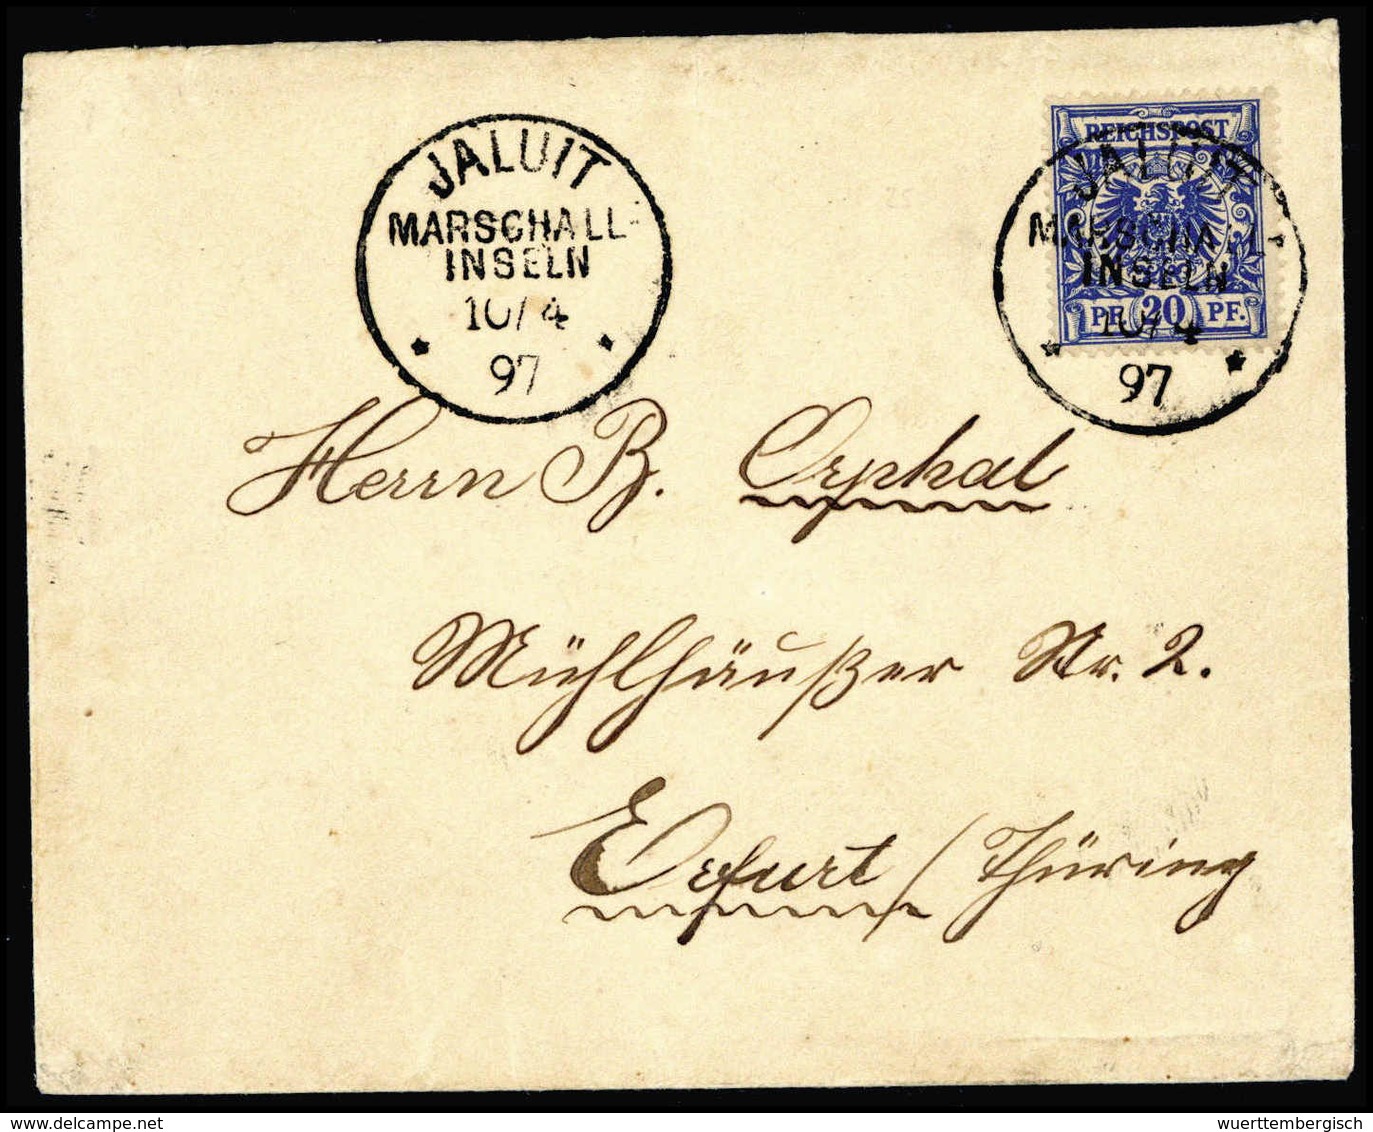 JALUIT
MARSCHALL-
INSELN
10/4
97
REICHSPOST
PF. 20 PF.
JALUIT
MARSCHALL-
INSELN
10/4
97
Herrn B. Orphal
Mühlhäußer Str. 2.
Erfurt / Thüring
delcampe.net
wuerttembergisch